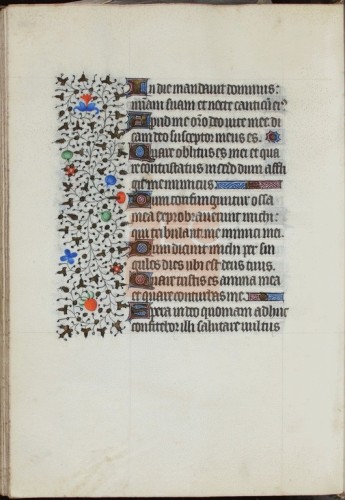 In die mandavit dominus:
m̄iam suam et nocte canticū eiꝰ
Apud me or̄o deo vite mee. di
cam deo susceptor meus es.
Quare oblitus es mei et qua
re contristatus incedo dum affli
git me inimicus
Dum confringuntur ossa
mea exprobraverunt michi:
qui tribulant me inimici mei.
Dum dicunt michi per sin
gulos dies ubi est deus tuus.
Quare tristis es anima mea
et quare conturbas me.
Spera in deo quoniam adhuc
confitebor illi salutare vultus